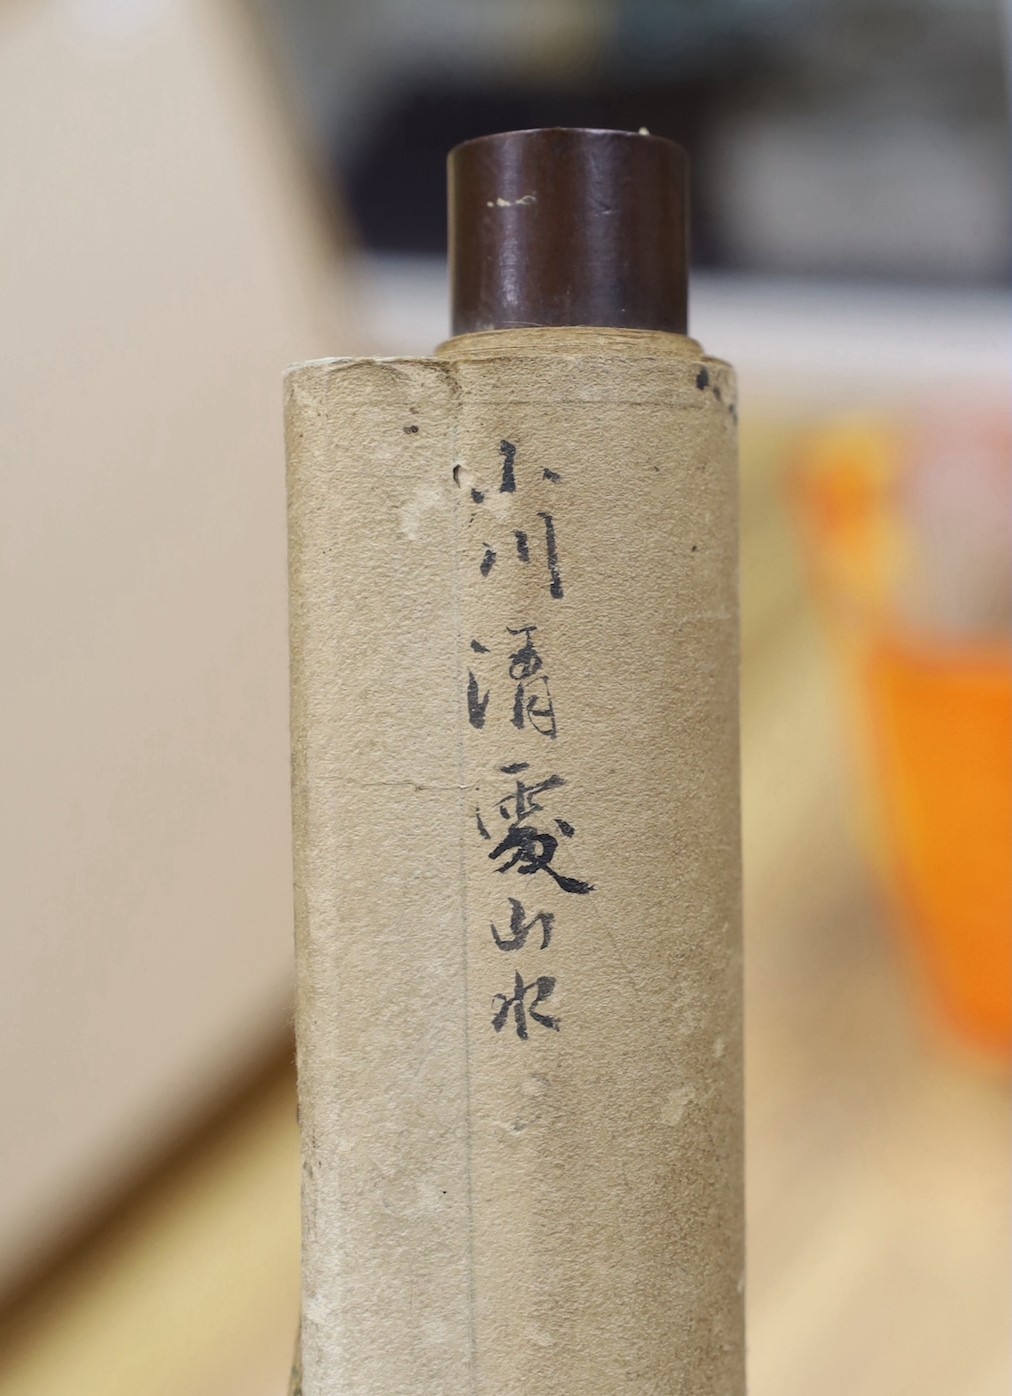 小川清山水